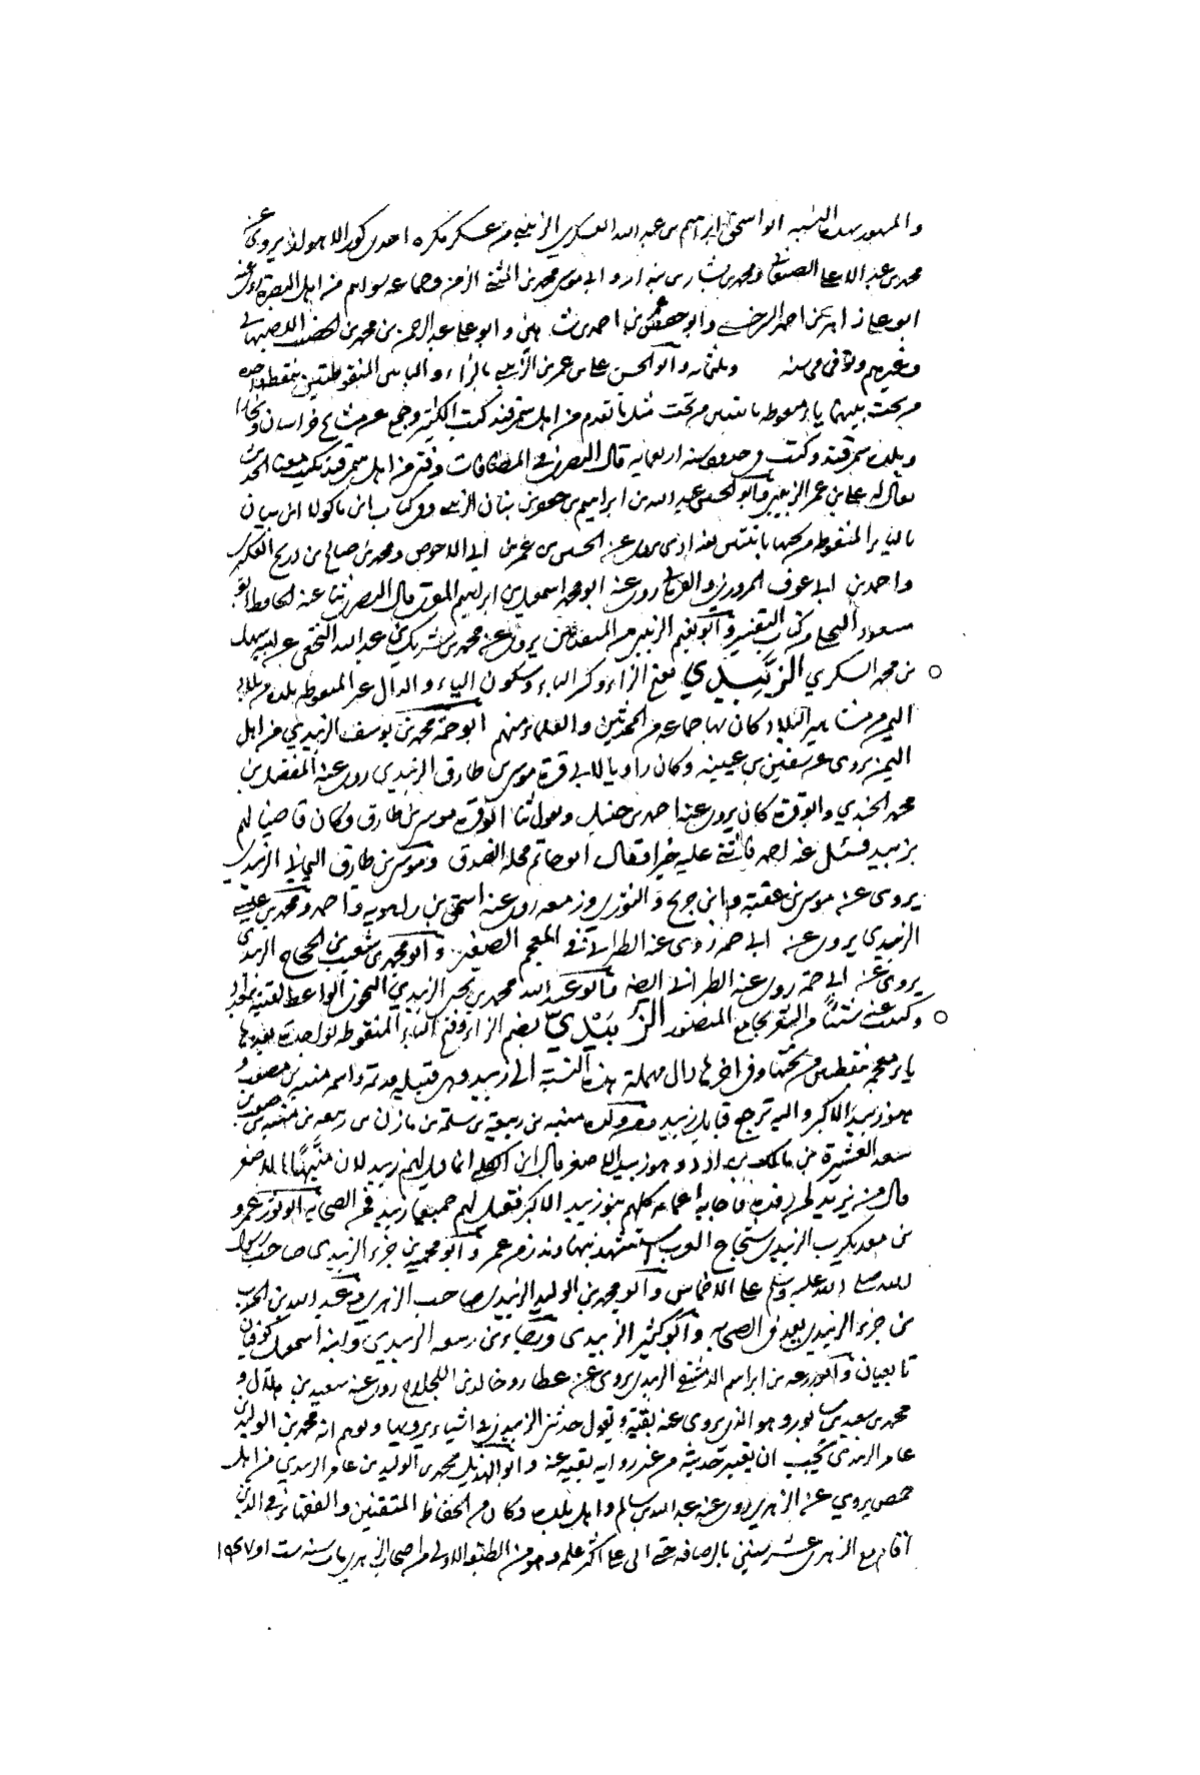 والمشهور بهذه النسبة ابو اسحق ابراهيم بن عبد الله العسكري الزبيبي من عسكر مكرم احدى كور الاهواز يروي عن
محمد بن عبد الاعلى الصنعاني ومحمد بن بشار بندار وابي موسى محمد بن المثنى الزمن وجماعة سواهم من اهل البصرة روى عنه
ابو علي زاهر بن احمد السرخسي وابو حفص بن احمد بن شاهين وابو علي عبد الرحمن بن محمد بن الاصبهاني
وغيرهم وتوفي في سنة وثلثمائة وابو الحسن علي بن عمر بن الزبيبي بالزاء والباءين المنقوطتين بنقطة واحدة
من تحت بينهما ياء منقوطة باثنتين من تحت مثل ما تقدم من اهل سمرقند كتب الكثير وجمع عن مشايخ خراسان وبخارا
وبلده سمرقند وكتب في حدود سنة اربعمائة قال البصيري في المضافات وفتى من اهل سمرقند يكتب معنا الحديث
يقال له علي بن عمر الزبيبي وابو الحسين عبيد الله بن ابراهيم بن جعفر بن بنان الزبيبي وفي كتاب ابن ماكولا ابن بيان
بالياء المنقوطة من تحتها باثنتين بغدادي يروي عن الحسن بن عمر بن ابي الاحوص ومحمد بن صالح بن ذريح العكبري
واحمد بن ابي عوف المروزي والفريابي روى عنه ابو محمد اسمعيل بن ابراهيم المقرئ قال البصيري ثنا عنه الحافظ ابو
مسعود البجلي في كتاب التفسير وابو نعيم الزبيبي من المتقدمين يروي عن محمد بن شريك بن عبد الله النخعي عن سهل
بن محمد السكري الزَّبِيْدي بفتح الزاء وكسر الباء وسكون الياء والدال غير المنقوطة بلدة من بلاد
اليمن من مشاهير البلاد كان بها جماعة من المحدثين والعلماء منهم ابو حمة محمد بن يوسف الزبيدي من اهل
اليمن يروي عن سفين بن عيينه وكان راويا لابي قرة موسى بن طارق الزبيدي روى عنه المفضل بن
محمد الجندي وابو قرة كان يروي عنه احمد بن حنبل ويقول ثنا ابو قرة موسى بن طارق وكان قاضيا لهم
بزبيد فسئل عنه احمد فاثنى عليه خيرا فقال ابو حاتم محله الصدق وموسى بن طارق اليماني الزبيدي
يروي عن موسى بن عقبة وابن جريج والثوري وزمعه روى عنه اسحق بن راهويه واحمد ومحمد بن عيسى
الزبيدي يروي عن ابي حمة روى عنه الطبراني في المعجم الصغير وابو محمد بن شعيب بن الحجاج الزبيدي
يروي عن ابي حمة روى عنه الطبراني ايضا وابو عبد الله محمد بن يحيى الزبيدي النحوي الواعظ لقيته ببغداد
وكتبت عنه شيئا من الشعر بجامع المنصور الزُّبَيْدي بضم الزاء وفتح الباء المنقوطة بواحدة بعدها
ياء معجمة بنقطتين من تحتها وفي اخرها دال مهملة هذه النسبة الى زبيد وهي قبيلة قديمة واسمه منبه بن صعب
وهو زبيد الاكبر واليه ترجع قبايل زبيد ومن ولده منبه بن ربيعة بن سلمة بن مازن بن ربيعة بن منبه بن صعب بن
سعد العشيرة من مالك بن ادد وهو زبيد الاصغر قال ابن الكلبي انما قيل لهم زبيد لان منبها الاصغر
قال من يزيدني رفده فاجابه اعمامه كلهم بنو زبيد الاكبر فقيل لهم جميعا زبيد فمن الصحابة ابو ثور عمرو
بن معديكرب الزبيدي شجاع العرب استشهد بنهاوند زمن عمر وابو محمية بن جزء الزبيدي صاحب رسول
الله صلى الله عليه وسلم على الاخماس وابو محمد بن الوليد الزبيدي صاحب الزهري وعبد الله بن الحرث
بن جزء الزبيدي يعد في الصحابة وابو كثير الزبيدي ورجاء بن ربيعه الزبيدي وابنه اسمعيل كوفيان
تابعيان وابو زرعه بن ابراهيم الدمشقي الزبيدي يروي عن عطاء وخالد بن اللجلاج روى عنه سعيد بن هلال و
محمد بن سعيد بن سابور وهو الذي يروي عنه بقية ويقول حدثني الزبيدي في اشياء يرويها ويوهم انه محمد بن الوليد بن
عامر الزبيدي يجب ان يعتبر حديثه من غير رواية بقية عنه وابو الهذيل محمد بن الوليد بن عامر الزبيدي من اهل
حمص يروي عن الزهري روى عنه عبد الله بن سالم واهل بلده وكان من الحفاظ المتقنين والفقهاء في الدين
اقام مع الزهري عشر سنين بالرصافة حتى احتوى على اكثر علمه وهو من الطبقة الاولى من اصحاب الزهري مات سنة ست او ١٤٧